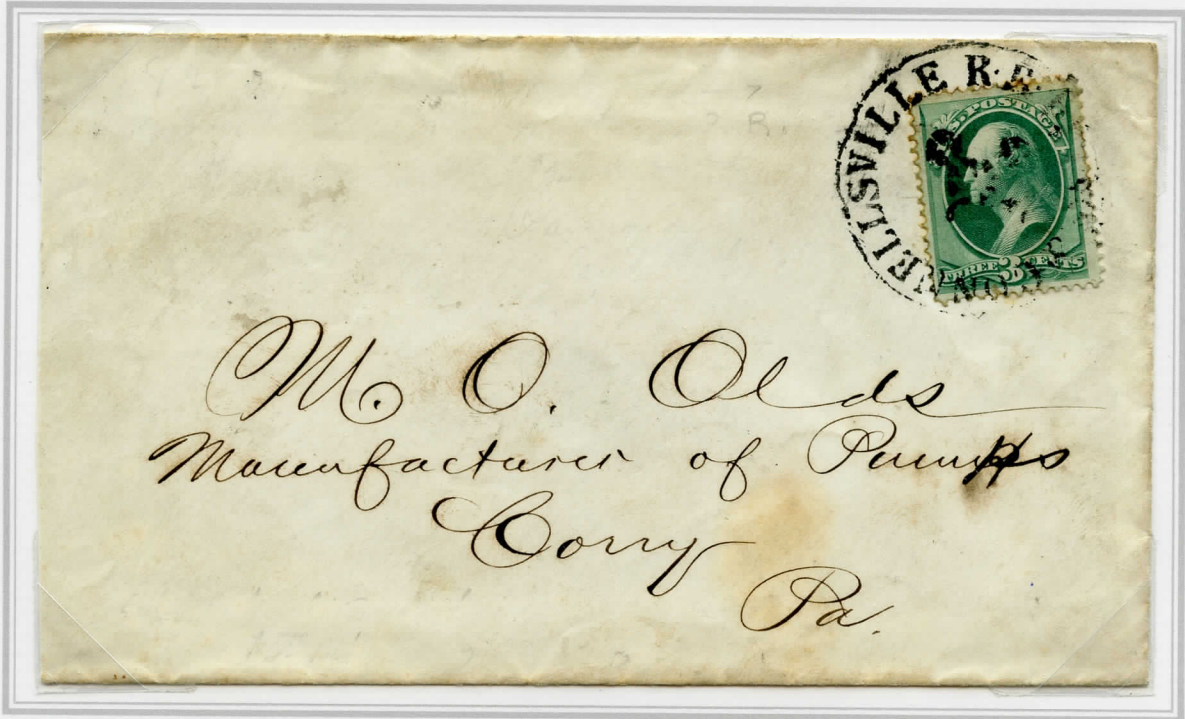 ELLSVILLE R.R.
U.S. POSTAGE
THREE 3 CENTS
M. O. Olds
Manufacturer of Pumps
Corry
Pa.